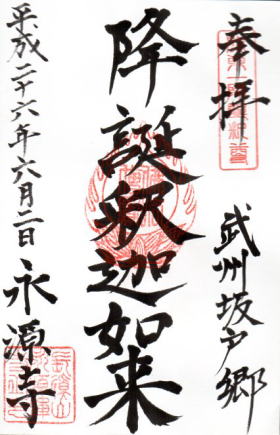 奉拝
武州坂戸郷
降誕釈迦如来
平成二十六年六月二日
永源寺